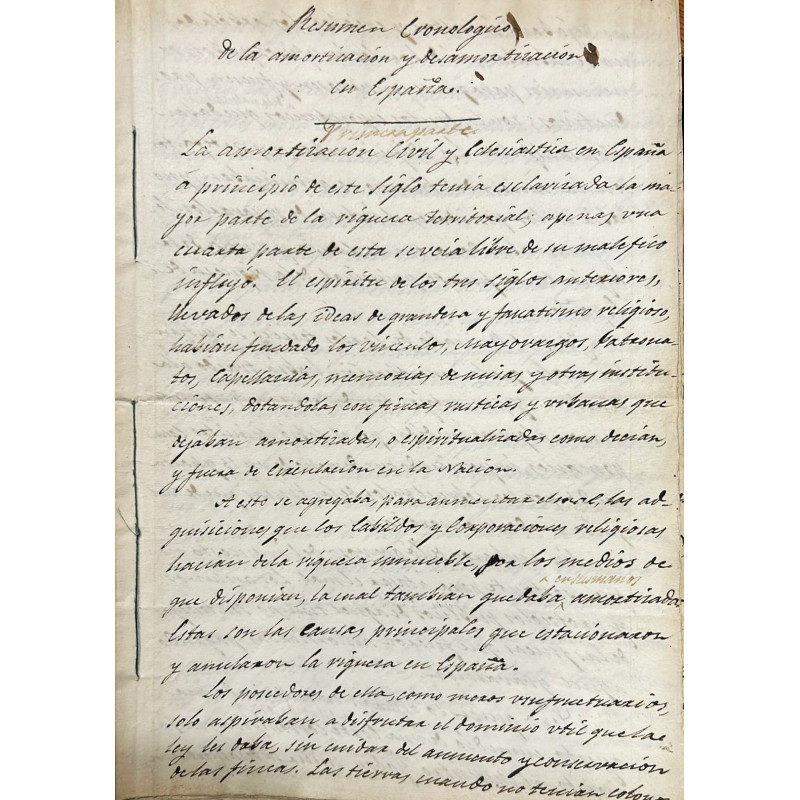 Resumen Cronologico
de la amortizacion y desamortizacion
en España.
Primera parte.
La amortizacion Civil y Eclesiastica en España
á principio de este siglo tenia esclavizada la ma-
yor parte de la riqueza territorial; apenas una
cuarta parte de esta se veia libre de su malefico
influjo. El espiritu de los tres siglos anteriores,
llevados de las ideas de grandeza y fanatismo religioso,
habian fundado los vinculos, Mayorazgos, Patrona-
tos, Capellanias, memorias de misas y otras institu-
ciones, dotandolas con fincas rusticas y urbanas que
dejaban amortizadas, o espiritualizadas como decian,
y fuera de Circulacion en la Nacion.
A esto se agregaba, para aumentar el mal, las ad-
quisiciones que los Cabildos y Corporaciones religiosas
hacian de la riqueza inmueble, por los medios de
en sus manos
que disponian, la cual tambian quedaba amortizada.
Estas son las causas principales que estacionaron
y anularon la riqueza en España.
Los poseedores de ella, como meros usufructuarios,
solo aspiraban a disfrutar el dominio util que la
ley les daba, sin cuidar del aumento y conservacion
de las fincas. Las tierras cuando no tenian